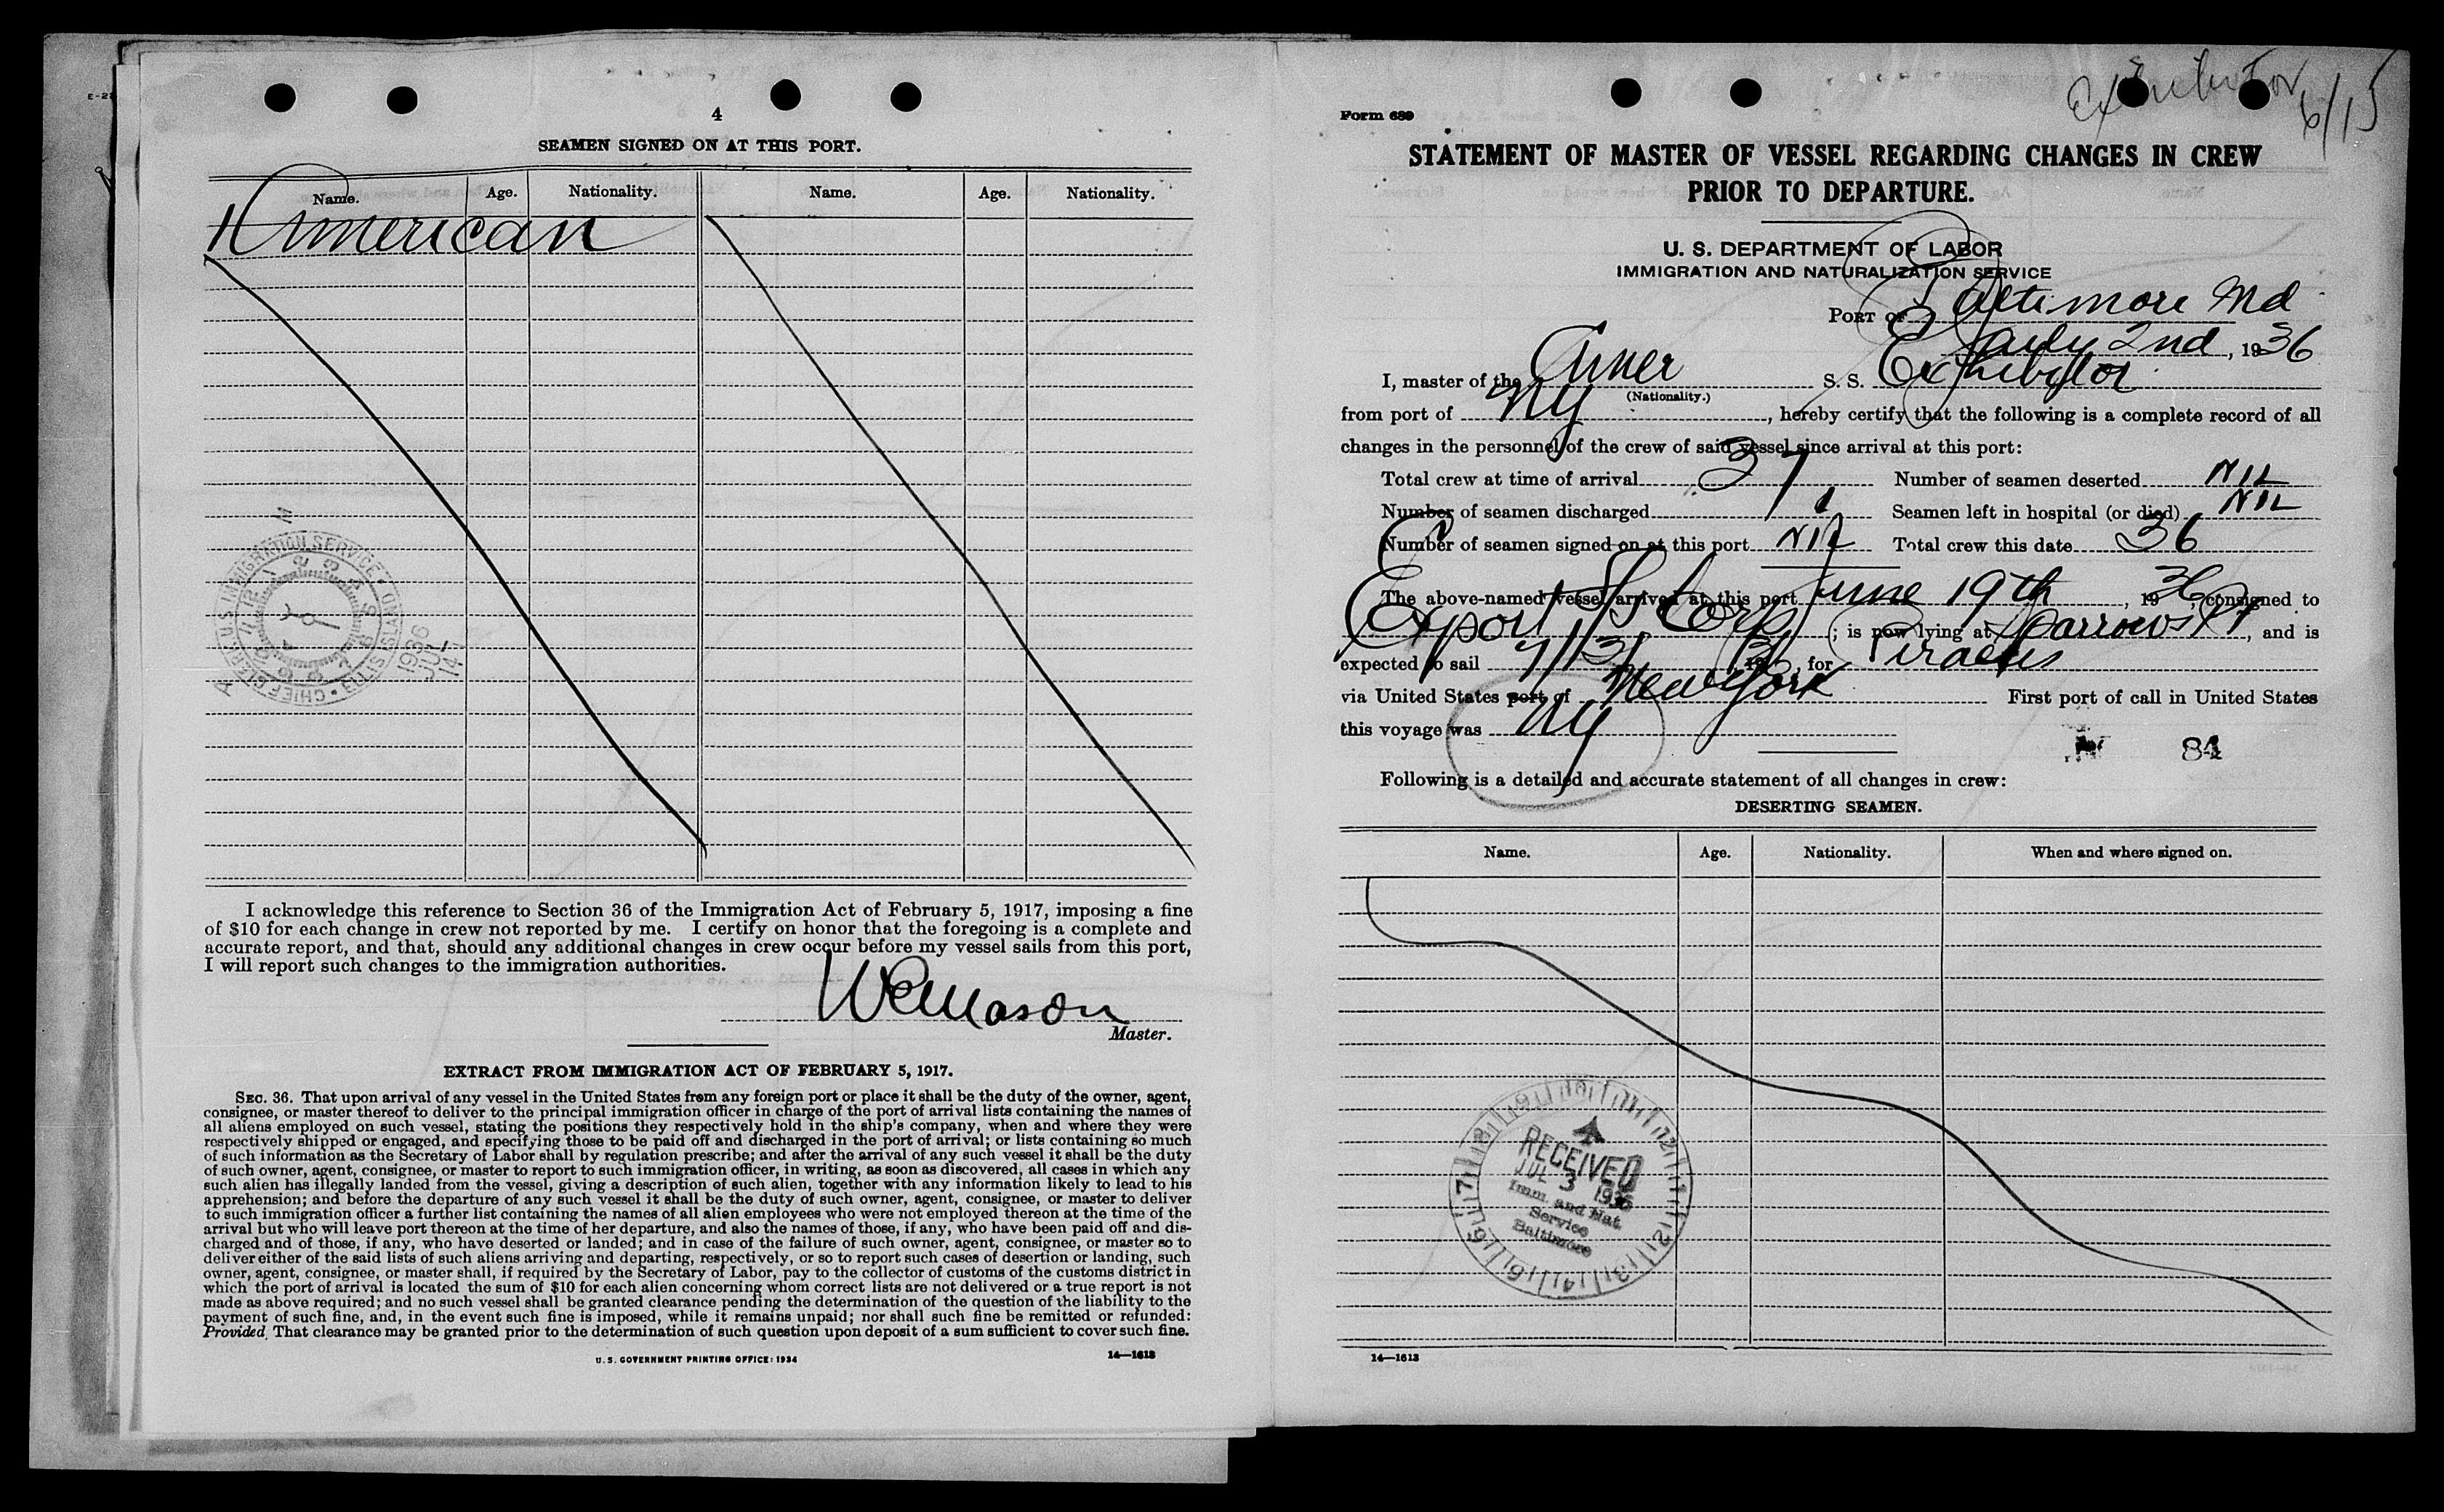 4
SEAMEN SIGNED ON AT THIS PORT.
Name. Age. Nationality. Name. Age. Nationality.
American
CHIEF CLERK, U.S. IMMIGRATION SERVICE • ELLIS ISLAND
1936
JUL
14
I acknowledge this reference to Section 36 of the Immigration Act of February 5, 1917, imposing a fine
of $10 for each change in crew not reported by me. I certify on honor that the foregoing is a complete and
accurate report, and that, should any additional changes in crew occur before my vessel sails from this port,
I will report such changes to the immigration authorities.
Mason
Master.
EXTRACT FROM IMMIGRATION ACT OF FEBRUARY 5, 1917.
SEC. 36. That upon arrival of any vessel in the United States from any foreign port or place it shall be the duty of the owner, agent,
consignee, or master thereof to deliver to the principal immigration officer in charge of the port of arrival lists containing the names of
all aliens employed on such vessel, stating the positions they respectively hold in the ship's company, when and where they were
respectively shipped or engaged, and specifying those to be paid off and discharged in the port of arrival; or lists containing so much
of such information as the Secretary of Labor shall by regulation prescribe; and after the arrival of any such vessel it shall be the duty
of such owner, agent, consignee, or master to report to such immigration officer, in writing, as soon as discovered, all cases in which any
such alien has illegally landed from the vessel, giving a description of such alien, together with any information likely to lead to his
apprehension; and before the departure of any such vessel it shall be the duty of such owner, agent, consignee, or master to deliver
to such immigration officer a further list containing the names of all alien employees who were not employed thereon at the time of the
arrival but who will leave port thereon at the time of her departure, and also the names of those, if any, who have been paid off and dis-
charged and of those, if any, who have deserted or landed; and in case of the failure of such owner, agent, consignee, or master so to
deliver either of the said lists of such aliens arriving and departing, respectively, or so to report such cases of desertion or landing, such
owner, agent, consignee, or master shall, if required by the Secretary of Labor, pay to the collector of customs of the customs district in
which the port of arrival is located the sum of $10 for each alien concerning whom correct lists are not delivered or a true report is not
made as above required; and no such vessel shall be granted clearance pending the determination of the question of the liability to the
payment of such fine, and, in the event such fine is imposed, while it remains unpaid; nor shall such fine be remitted or refunded:
Provided, That clearance may be granted prior to the determination of such question upon deposit of a sum sufficient to cover such fine.
U. S. GOVERNMENT PRINTING OFFICE: 1934 14—1613
Exhibitor 6/15
Form 689
STATEMENT OF MASTER OF VESSEL REGARDING CHANGES IN CREW
PRIOR TO DEPARTURE.
U. S. DEPARTMENT OF LABOR
IMMIGRATION AND NATURALIZATION SERVICE
PORT OF Baltimore Md
July 2nd, 1936
I, master of the Amer S. S. Exhibitor
(Nationality.)
from port of NY, hereby certify that the following is a complete record of all
changes in the personnel of the crew of said vessel since arrival at this port:
Total crew at time of arrival 37 Number of seamen deserted NIL
Number of seamen discharged 1 Seamen left in hospital (or died) NIL
Number of seamen signed on at this port NIL Total crew this date 36
The above-named vessel arrived at this port June 19th, 1936, consigned to
Export SS Corp; is now lying at Sparrows Pt, and is
expected to sail 7/3/, 19, for Piraeus
via United States port of New York First port of call in United States
this voyage was NY
84
Following is a detailed and accurate statement of all changes in crew:
DESERTING SEAMEN.
Name. Age. Nationality. When and where signed on.
RECEIVED
JUL 3 1936
Imm. and Nat.
Service
Baltimore
14—1613